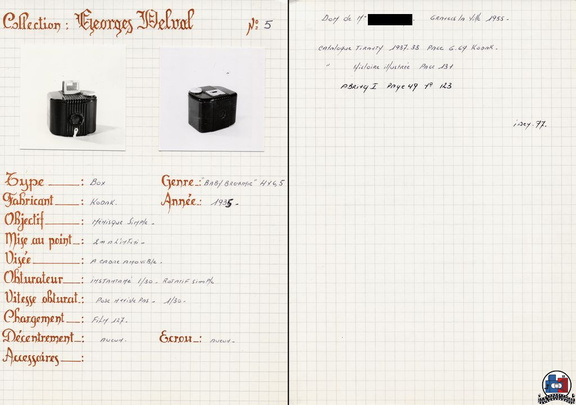 Collection: Georges Delval N° 5
Type : Box
Genre: "BABY BROWNIE" 4x6,5
Fabricant : Kodak.
Année: 1935-
Objectif : Ménisque Simple-
Mise au point : 2m à l'infini-
Visée : A cadre amovible-
Obturateur : INSTANTANÉ 1/30- Rotatif simple
Vitesse obturat.: Pose 1/30-
Chargement : Film 127.
Décentrement : aucun.
Ecrou : aucun-
Accessoires :
Don de Mr 1955-
Catalogue Tiranty 1937.38 Page 6.69 Kodak.
" Histoire illustrée Page 131
Abring I Page 49 N° 123